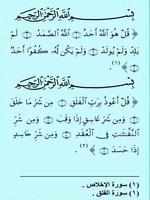 بِسْمِ اللَّهِ الرَّحْمَٰنِ الرَّحِيمِ
﴿ قُلْ هُوَ اللَّهُ أَحَدٌ ۝ اللَّهُ الصَّمَدُ ۝ لَمْ
يَلِدْ وَلَمْ يُولَدْ ۝ وَلَمْ يَكُن لَّهُ كُفُوًا أَحَدٌ ۝ ﴾
(١) .
بِسْمِ اللَّهِ الرَّحْمَٰنِ الرَّحِيمِ
﴿ قُلْ أَعُوذُ بِرَبِّ الْفَلَقِ ۝ مِن شَرِّ مَا خَلَقَ
۝ وَمِن شَرِّ غَاسِقٍ إِذَا وَقَبَ ۝ وَمِن شَرِّ
النَّفَّاثَاتِ فِي الْعُقَدِ ۝ وَمِن شَرِّ حَاسِدٍ
إِذَا حَسَدَ ۝ ﴾ (٢) .
(١) سورة الإخلاص .
(٢) سورة الفلق .